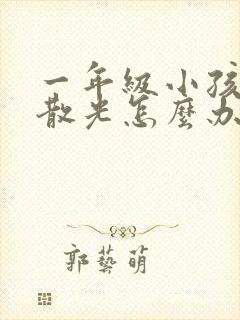 一年級小孩
散光怎麼办
郭藝萌